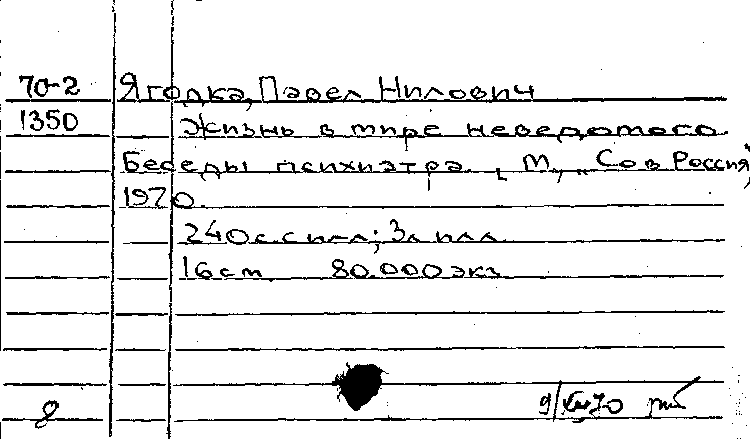 70-2 Ягодка, Павел Нилович
1350 Жизнь в мире неведомого.
Беседы психиатра. [М., "Сов Россия",
1970.
240 с. с илл; 3 л илл.
16 см 80.000 экз
8 9/XII 70